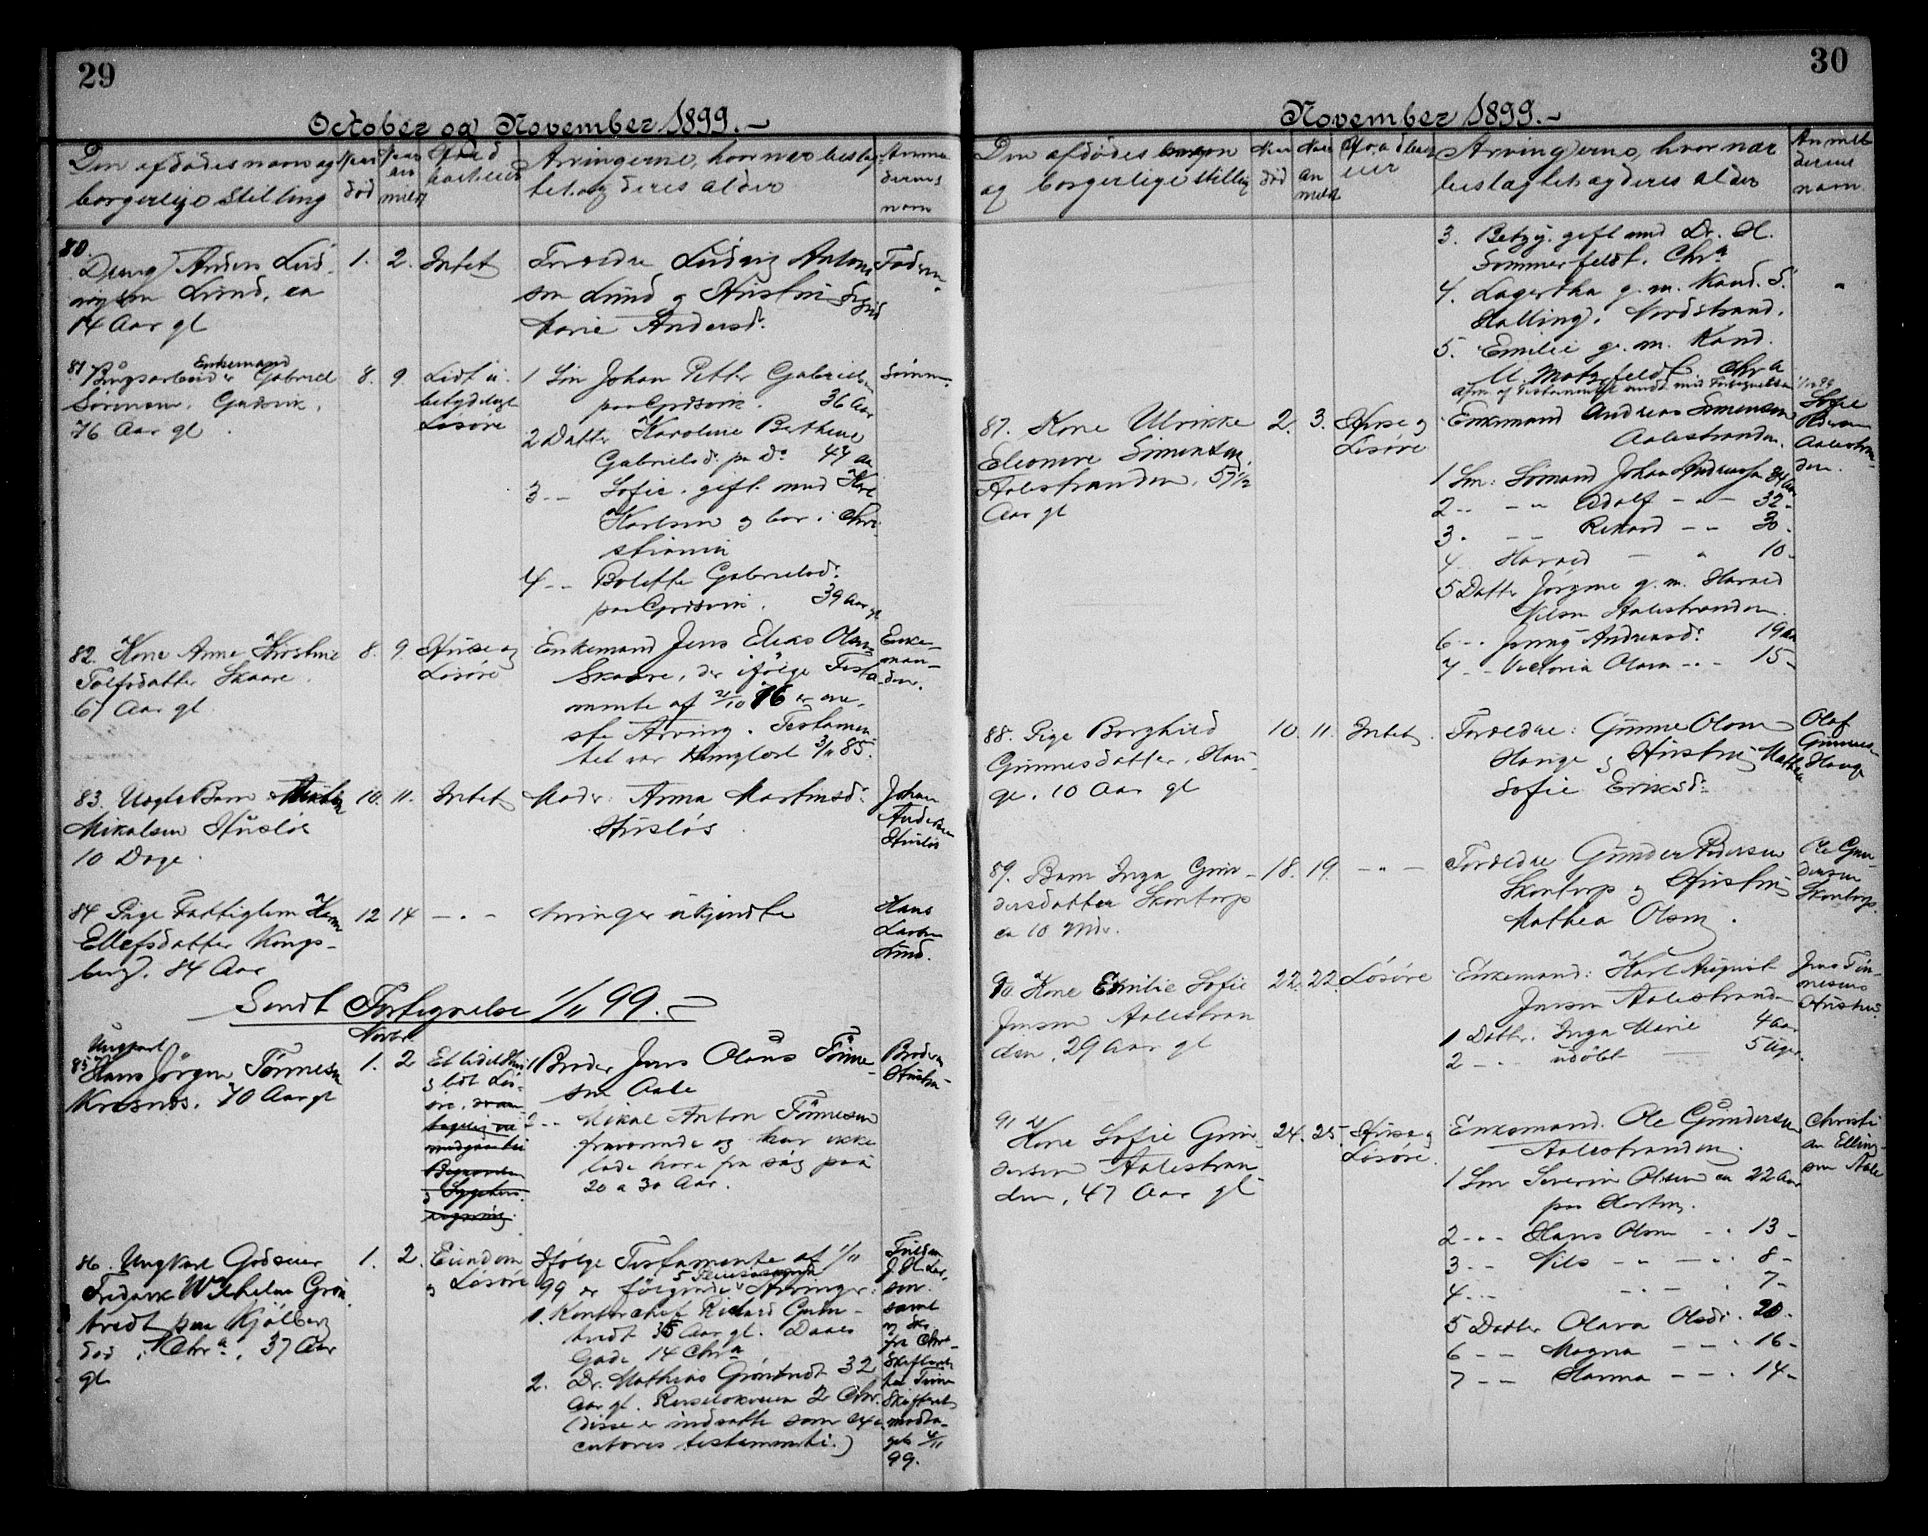 29
October og November 1899.
Den afdødes navn og
borgerlige Stilling
naar
død
naar
an
meldt
Arvingerne, hvor nær beslæg-
tet og deres alder
Anme
dernes
navn
80.
Dreng Anders Lud
vigsen Lund, ca
14 Aar gl
1.
2.
Intet
Forældre Ludvig Anton
sen Lund og Hustru Sigrid
Marie Andersd.
Faderen
81. Enkemand
Gabriel
Sørensen,
76 Aar gl.
8.
9.
Lidt u-
betydeligt
Løsøre
1 Søn Johan Petter Gabrielsen
paa Grdsvik. 36 Aar
2 Datter Karoline Bethine
Gabrielsd. paa do 47 Aar
3 -- Sofie, gift med Karl
Karlsen og bor i Chri-
stiania
4 -- Bolette Gabrielsd.
paa Grdsvik. 39 Aar gl
Sønnen
82. Kone Anne Kirstine
Tolfsdatter Skaare.
67 Aar gl.
8.
9.
Huse og
Løsøre
Enkemand Jens Elias Olsen
Skaare, der ifølge Testa-
mente af 21/10 76 er ene-
ste Arving. Testamen-
tet var thinglæst 3/11 85.
Enke-
man-
den.
83. Uægte Barn
Mikalsen Husløs
10 Dage.
10.
11.
Intet
Moder: Anna Martinsd.
Husløs.
Johan
Andersen
Husløs
84 Pige Fattiglem Karen
Ellefsdatter Kongs-
berg. 84 Aar
12
14
- " -
Arvinger ukjendte
Hans
Larsen
Lund.
Sendt Fortegnelse 1/11 99.
Novbr.
Ungkarl
85 Hans Jørgen Tønnesen
Krosnes. 70 Aar gl
1.
2
Et lidet Hus
og lidt Løs-
øre,
1 Broder Jens Olaus Tønne-
sen Aale
2 -- Mikal Anton Tønnesen
fraværende og har ikke
ladt høre fra sig paa
20 a 30 Aar.
Broderens
Hustru
86. Ungkarl Godseier
Fredrik Wilhelm Grøn
tvedt paa Kjølberg
død i Chr.a, 37 Aar
gl
1.
2.
Eiendom
og Løsøre
Ifølge Testamente af 1/11
99 er følgende 5 Arvinger:
1. Kontorchef Rikard Grøn-
tvedt 35 Aar gl. Daaes
Gade 14 Chr.a
2. Dr. Mathias Grøntvedt 32
Aar gl. 2 Chr.
(disse er indsatte som exe-
cutores testamenti.)
J. H. Lar-
sen.
samt
fra Chr.
Skifteret
Skifteret
modta-
get 4/11
99.
30
November 1899.
Den afdødes navn
og borgerlige stilling
Naar
død
Naar
an
meldt
Arvingerne, hvor nær
beslægtet og deres alder
Anmel
dernes
navn
3. Betzy. gift med Dr. H.
Sommerfeldt. Chr.a
4. Lagertha g. m. Kand. S.
Halling. Nordstrand.
5. Emilie g. m. Kand.
U. Motzfeldt. Chr.a
"
87. Kone Ulrikke
Eleonore Simonsen,
Aalestranden. 57 1/2
Aar gl
2.
3.
Huse og
Løsøre
Enkemand Andreas Simonsen
Aalestranden.
1 Søn: Sømand Johan Andreassen 34 Aar
2 -- -- Adolf -- 32 -
3. -- Rikard -- 30 -
4. Harald - " 10 -
5 Datter Jørgine g. m. Harald
Nilsen Aalestranden.
6 -- Jenny Andreasd. 19 Aar
7 -- Victoria Olava -- 15 -
Sofie
Pedersen
Aalestran-
den.
88. Pige Borghild
Gunnesdatter, Hau-
ge. 10 Aar gl
10.
11.
Intet
Forældre: Gunne Olsen
Hauge og Hustru Mathea
Sofie Eriksd.
Olaf
Gunnesen
Hauge
89. Barn Inga Gun-
dersdatter Skontorp
ca 10 Mdr.
18.
19.
- " -
Forældre Gunder Pedersen
Skontorp og Hustru
Mathea Olsen.
Ole Gun-
dersen
Skontorp.
90 Kone Emilie Sofie
Jensen Aalestran
den, 29 Aar gl
22.
22.
Løsøre
Enkemand: Karl August
Jensen Aalestranden
1 Datter. Inga Marie 4 Aar
2 - " - udøbt 5 Uger.
Jens Tøn-
nesens
Hustru.
91 Kone Sofie Gun-
dersen Aalestran
den, 47 Aar gl
24.
25.
Huse og
Løsøre.
Enkemand. Ole Gundersen
Aalestranden.
1 Søn Severin Olsen ca 22 Aar
paa Horten.
2 -- Hans Olsen -- 13 -
3 -- Nils - " - 8 -
4 -- -- 7 -
5 Datter Olava Olsd. 20 -
6 -- Magna -- 16 -
7 -- Hanna -- 14 -
Christi
an Elling-
sen Aale